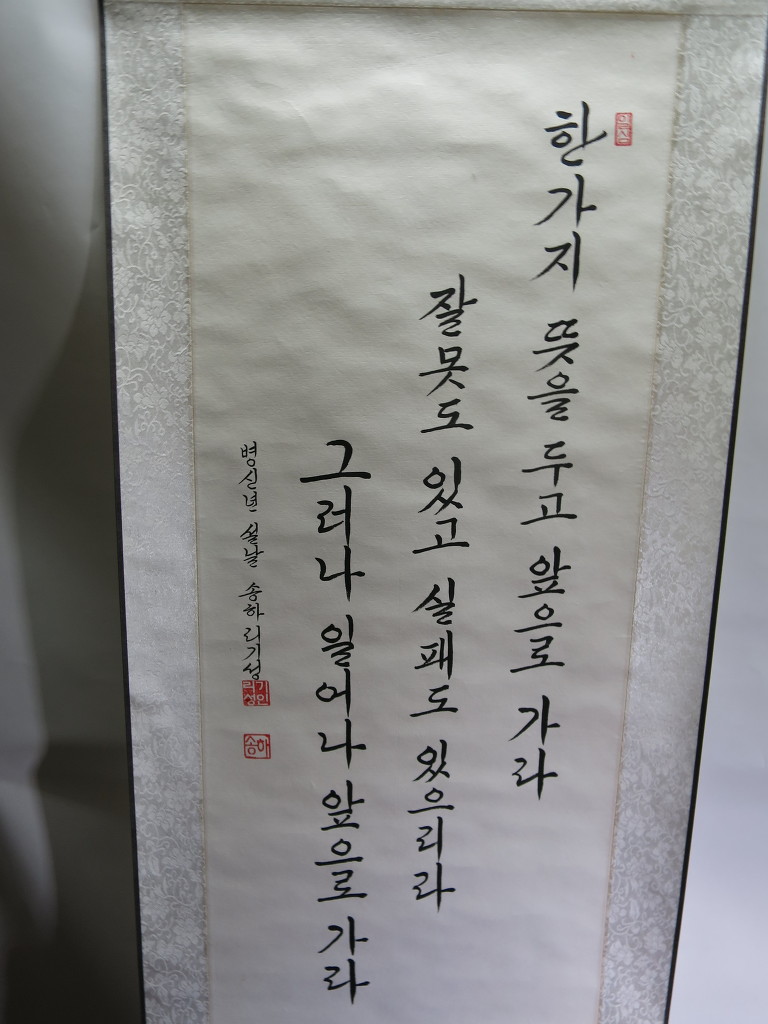 한가지 뜻을 두고 앞으로 가라
잘못도 있고 실패도 있으리라
그러나 일어나 앞으로 가라
병신년 설날 송하 리기성
리기성인
송하